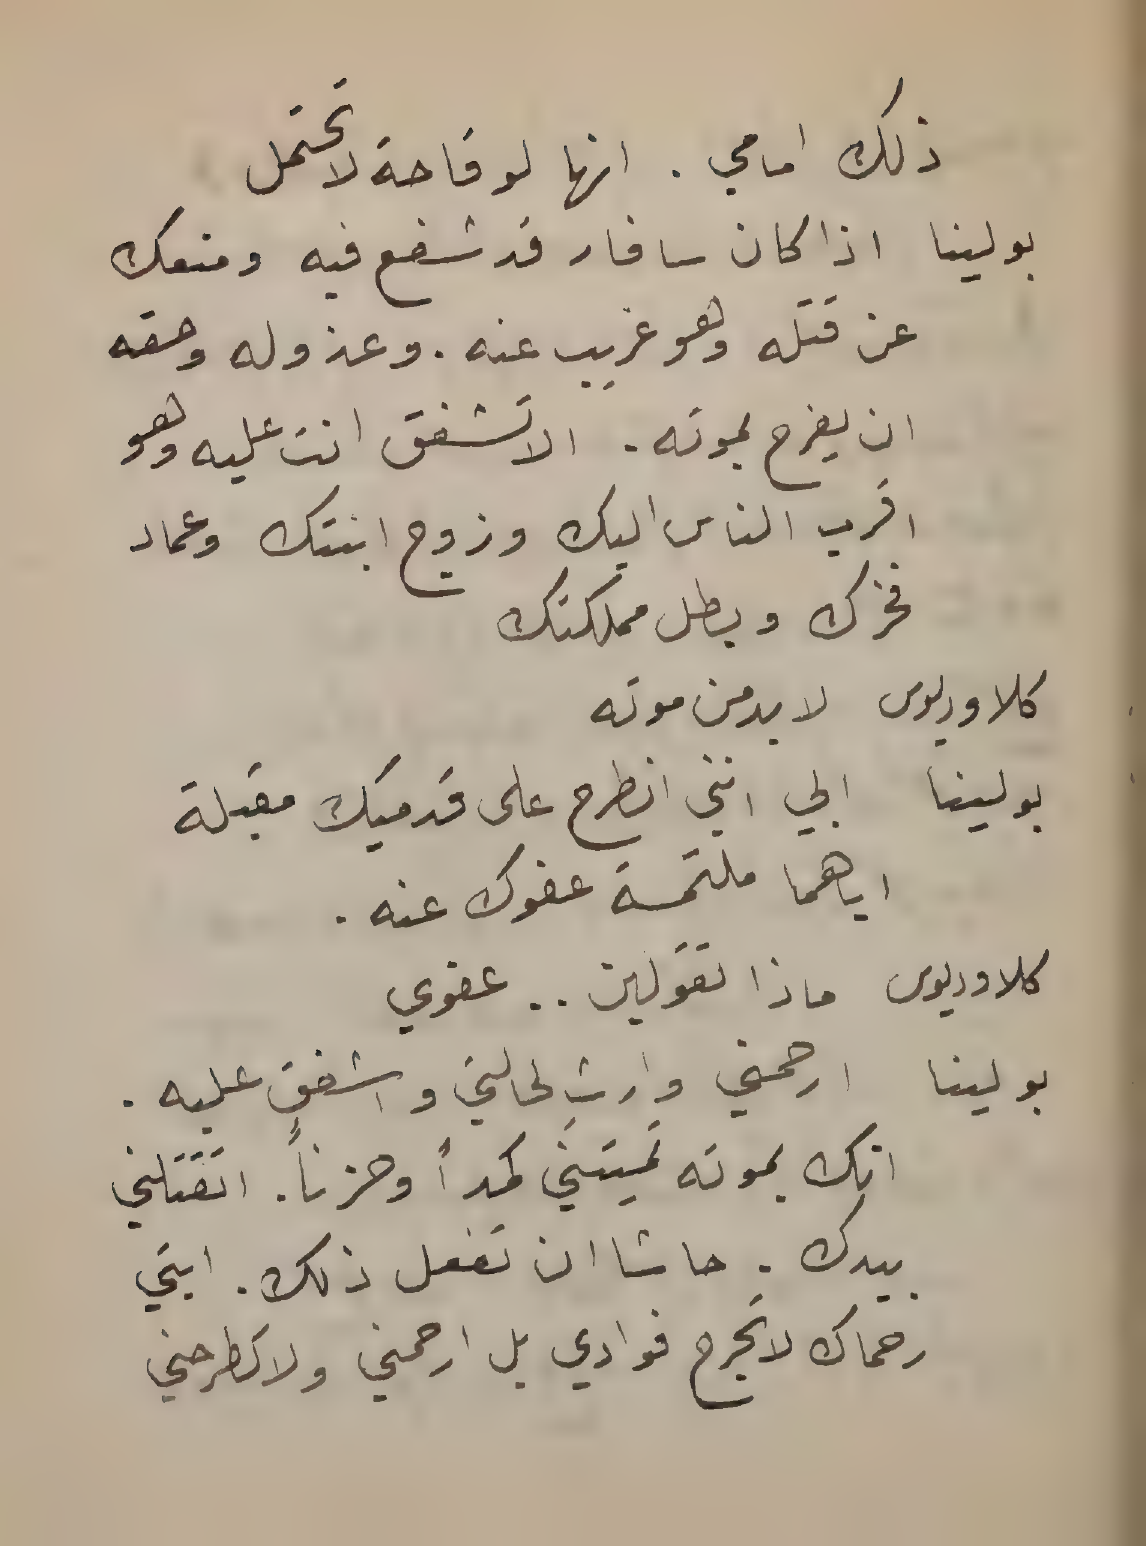 ذلك امامي . انها لوقاحة لا تحتمل
بولينا اذا كان سافار قد شفع فيه ومنعك
عن قتله وهو غريب عنه . وعذوله وحقه
ان يفرح بموته . الا تشفق انت عليه وهو
اقرب الناس اليك وزوج ابنتك وعماد
فخرك وبطل مملكتك
كلاوديوس لا بد من موته
بولينا ابي انني انطرح على قدميك مقبلة
اياهما ملتمسة عفوك عنه .
كلاوديوس ماذا تقولين . . عفوي
بولينا ارحمني وارثِ لحالتي واشفق عليه .
انك بموته تميتني كمداً وحزناً . اتقتلني
بيدك . حاشا ان تفعل ذلك . ابتي
رحماك لا تجرح فوادي بل ارحمني ولا تطرحني